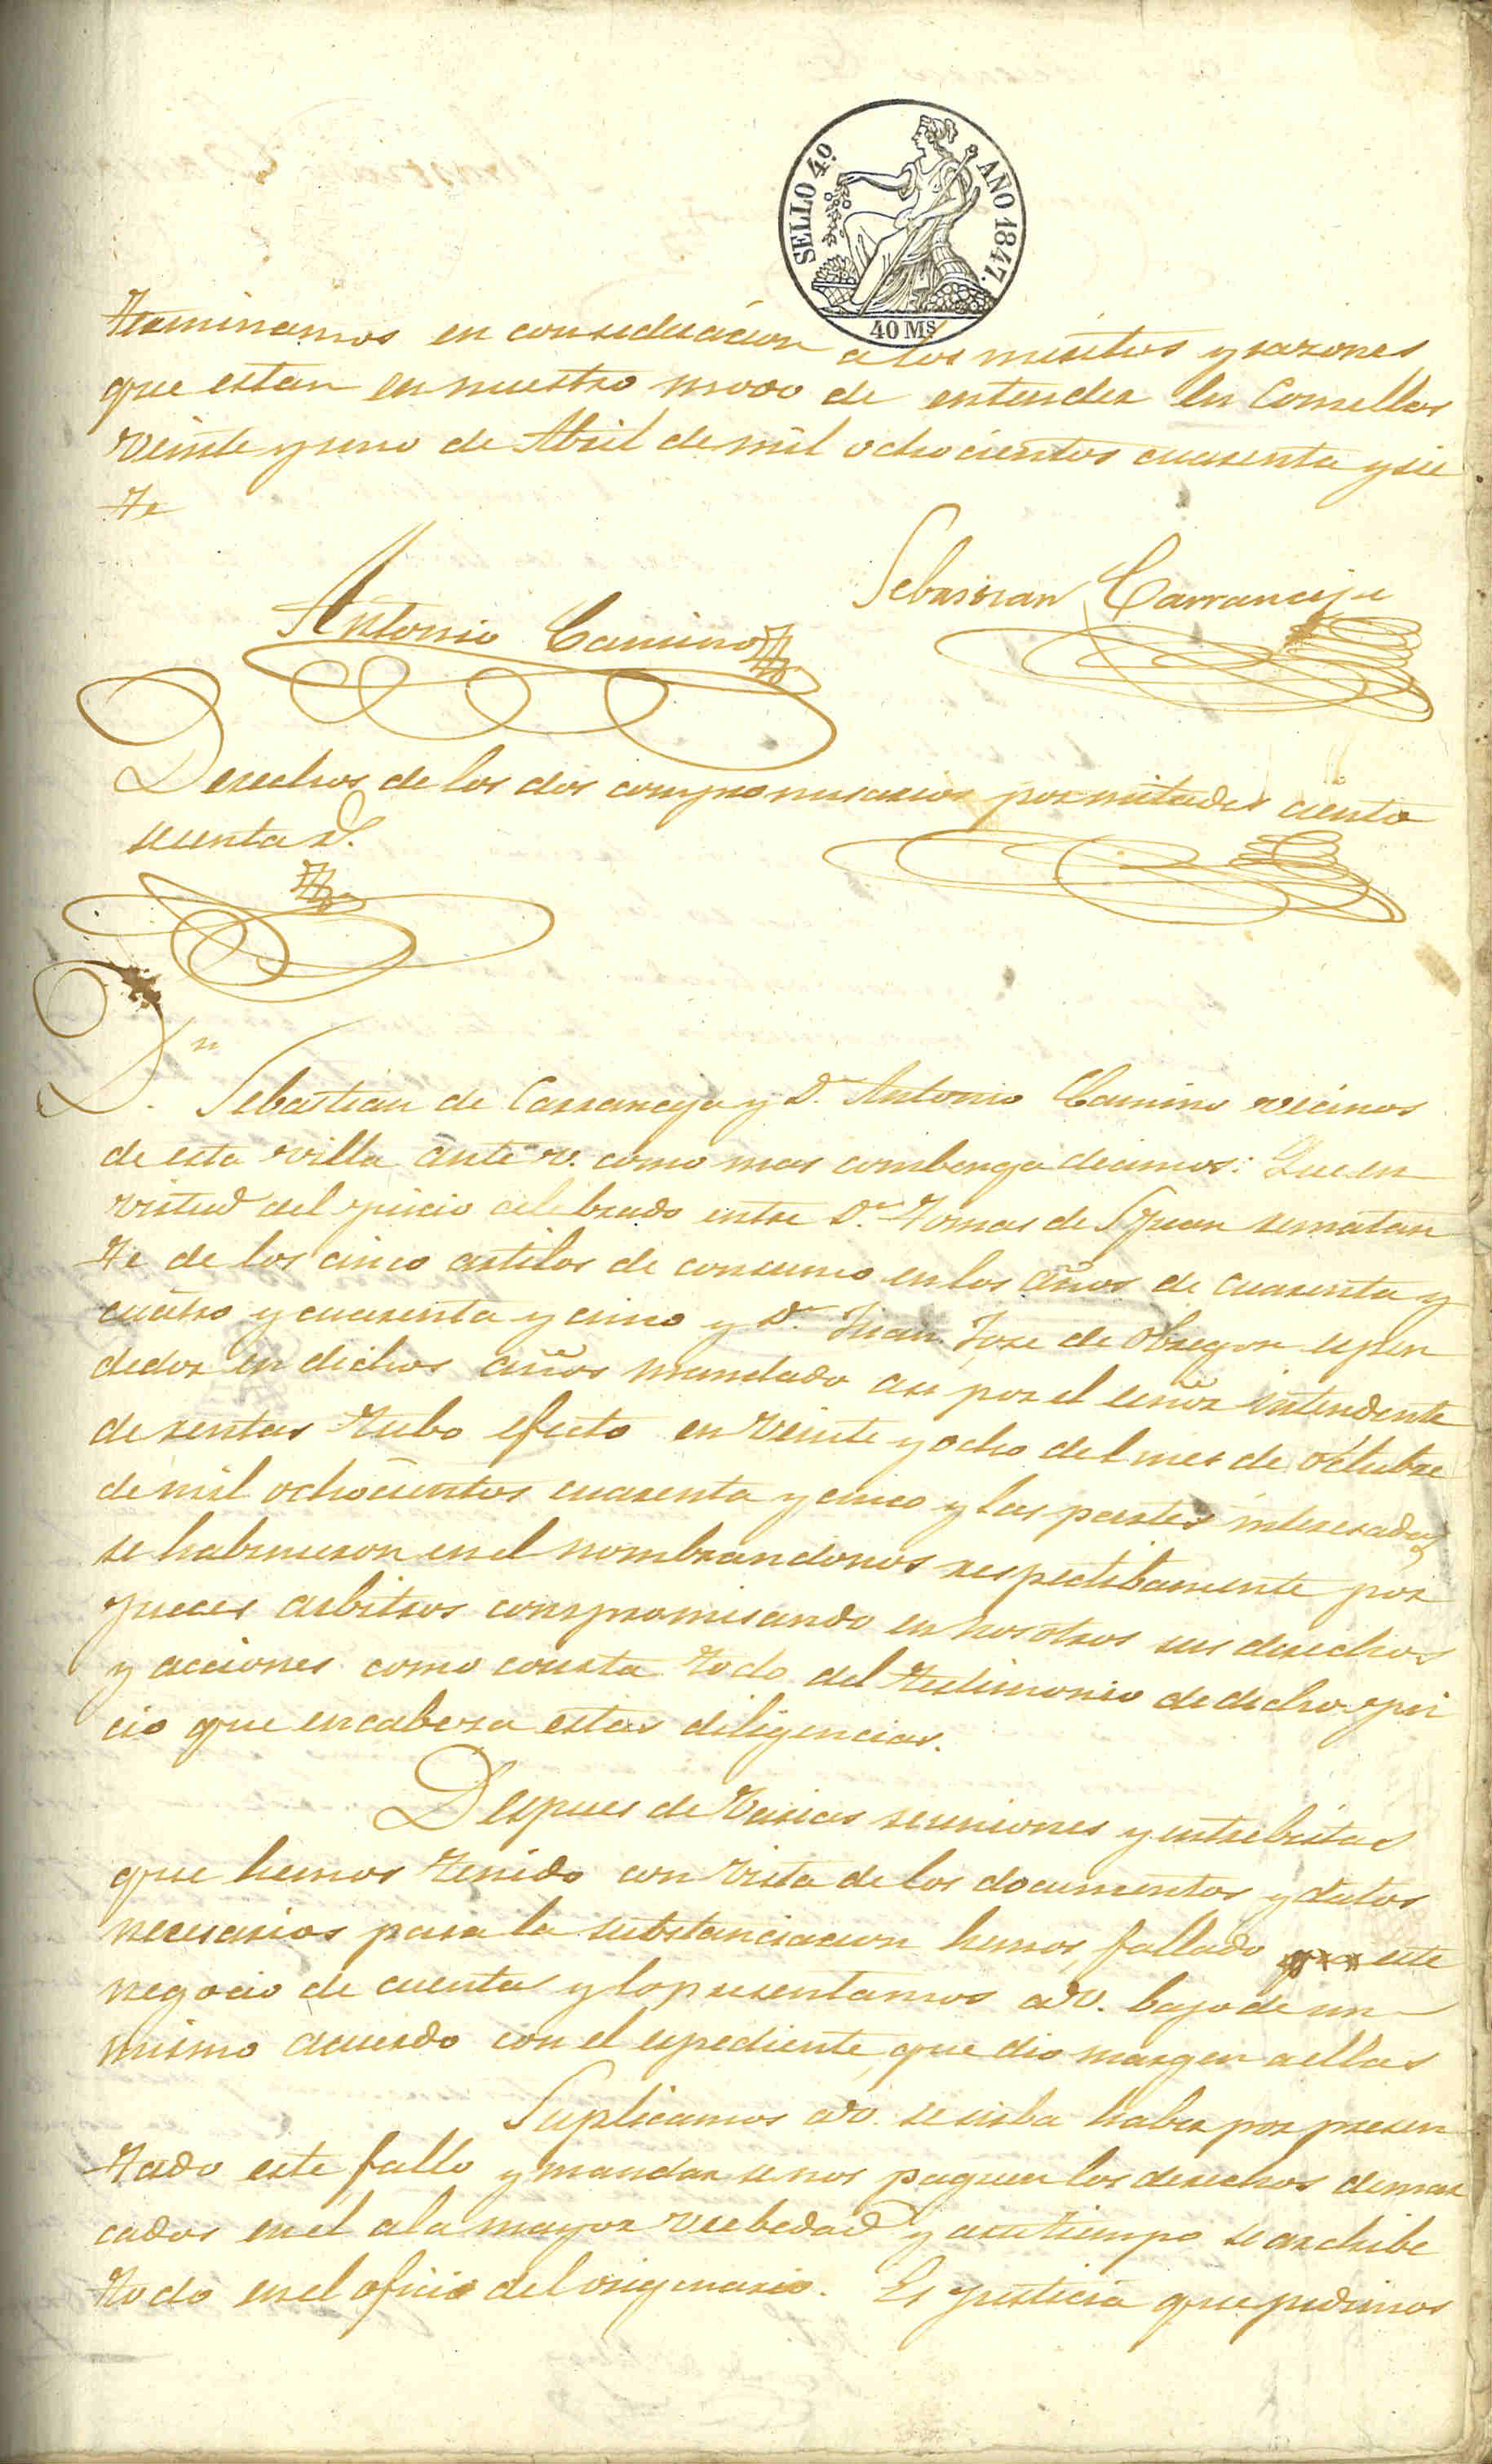 SELLO 4º AÑO 1847.
40 Ms
terminamos en consideracion a los meritos y razones
que estan en nuestro modo de entender en Comellas
veinte y uno de Abril de mil ochocientos cuarenta y sie
te
Sebastian Carranceja
Antonio Camino
Derechos de los dos compromisarios por mitades ciento
sesenta rs.
Dn
Sebastian de Carranceja y Dn Antonio Camino vecinos
de esta villa ante v. como mas combenga decimos: Que en
virtud del juicio celebrado entre Dn Tomas de S Juan rematan
te de los cinco artilos de consumo en los años de cuarenta y
cuatro y cuarenta y cinco y Dn Juan Jose de Obregon espen
dedor en dichos años mandado asi por el señor intendente
de rentas tubo efecto en veinte y ocho del mes de octubre
de mil ochocientos cuarenta y cinco y las partes interesadas
se habinieron en el nombrandonos respectibamente por
jueces arbitros compromisando en nosotros sus derechos
y acciones como consta todo del testimonio de dicho jui
cio que encabeza estas diligencias.
Despues de varias reuniones y entrebistas
que hemos tenido con vista de los documentos y datos
necesarios para la substanciacion hemos fallado este
negocio de cuentas y lo presentamos a v. bajo de un
mismo acuerdo con el espediente que dio margen a ellas
Suplicamos a v. se sirba haber por presen
tado este fallo y mandar se nos paguen los derechos demar
cados en el a la mayor vrebedad y a su tiempo se archibe
todo en el oficio del origenario. Es justicia que pedimos